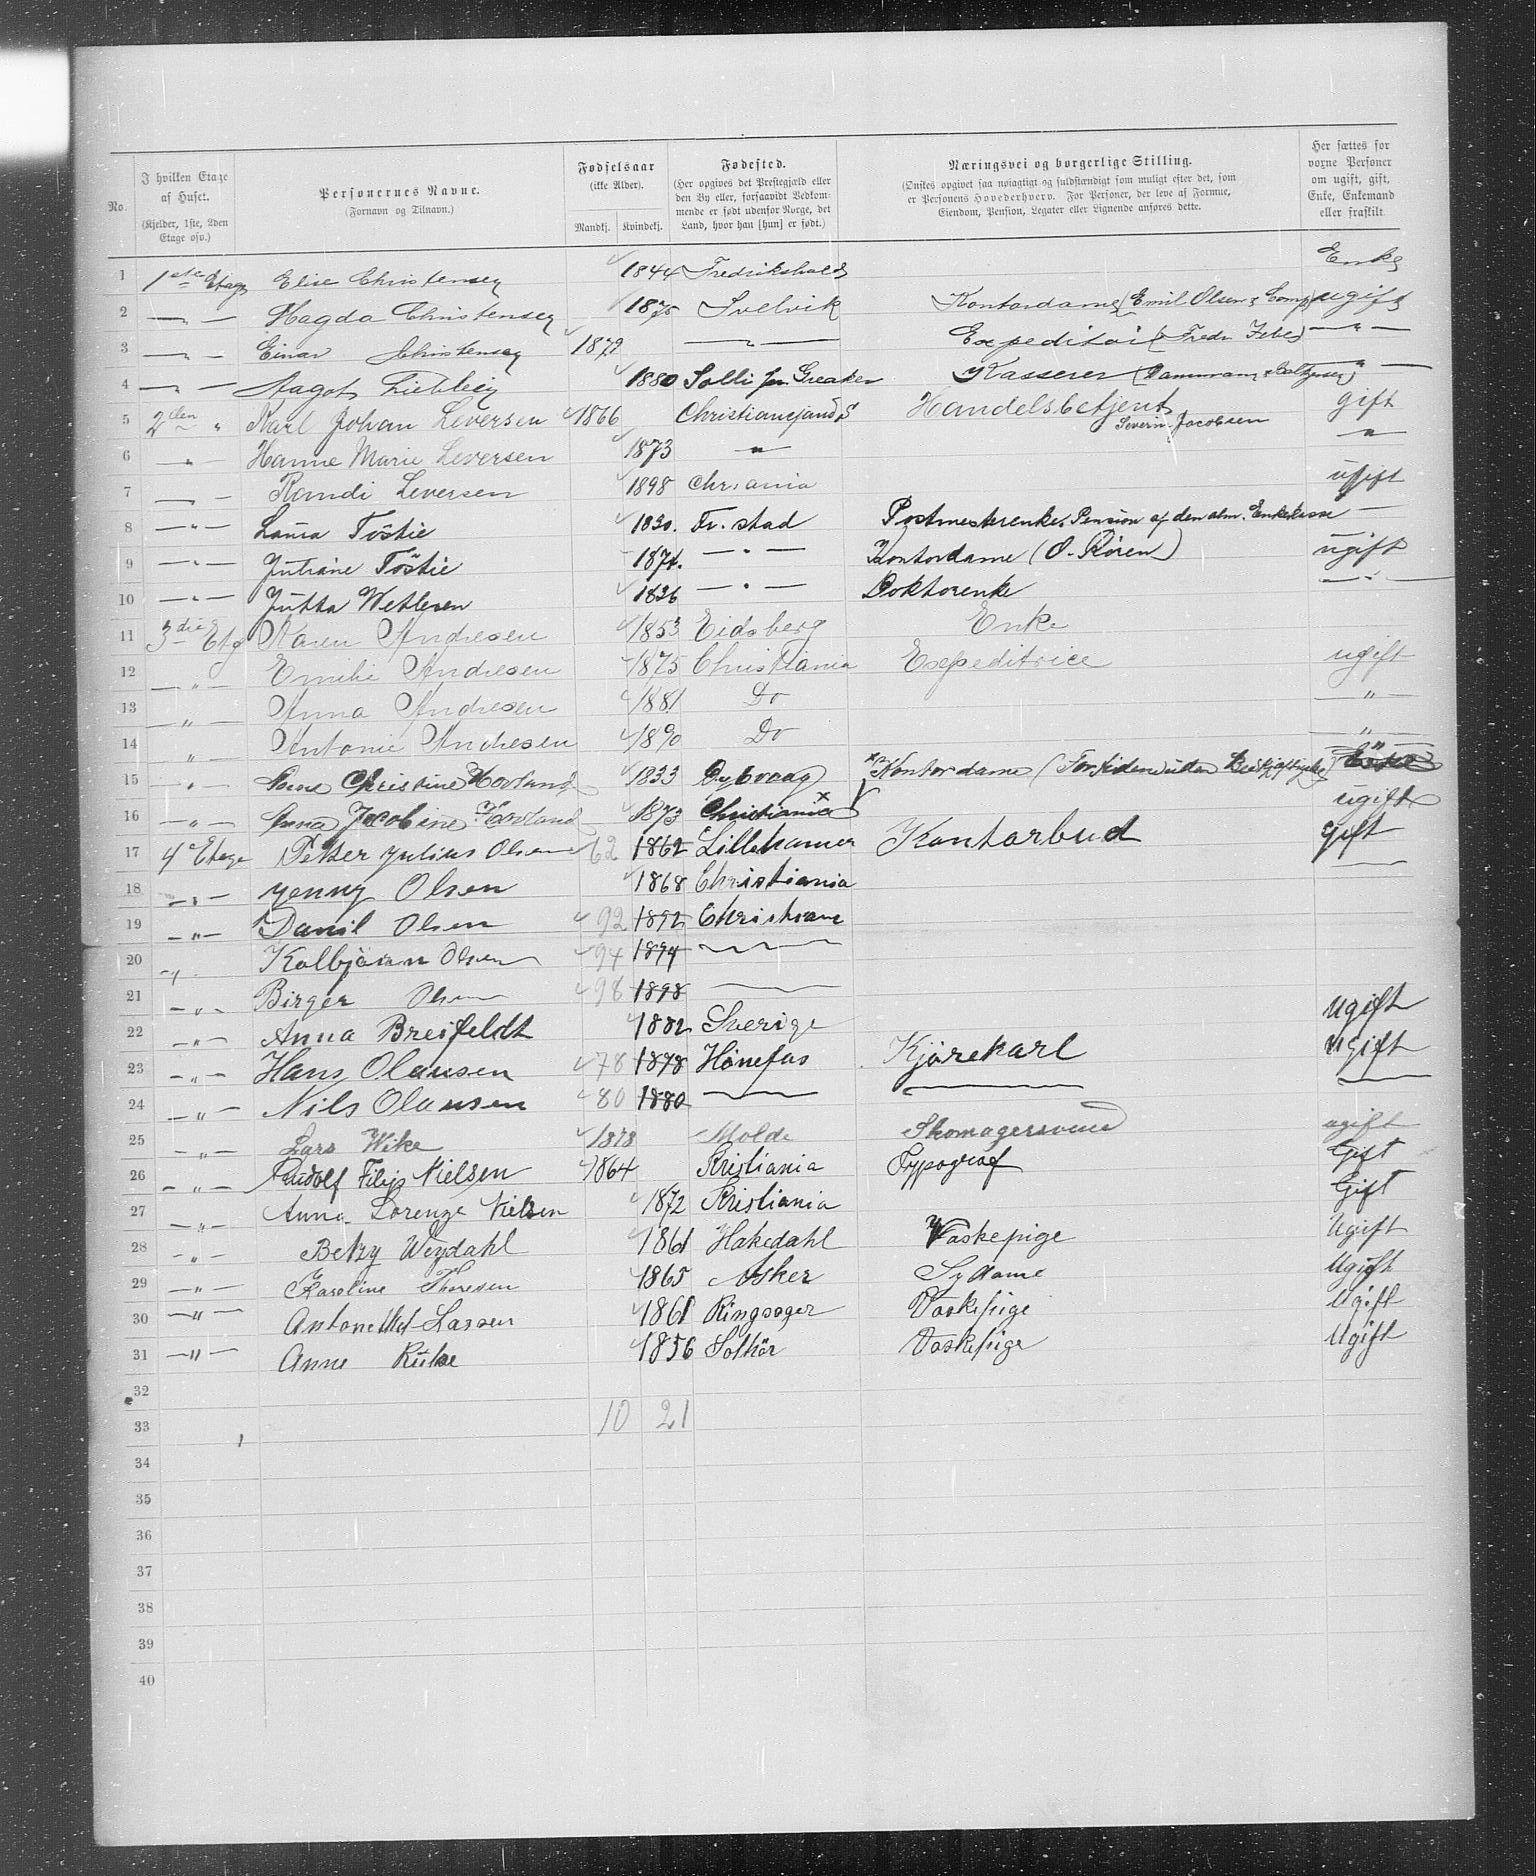 No. | I hvilken Etage af Huset. (Kjelder, 1ste, 2den Etage osv.) | Personernes Navne. (Fornavn og Tilnavn.) | Fødselsaar (ikke Alder). Mandkj. | Kvindekj. | Fødested. (Her opgives det Prestegjæld eller den By eller, forsaavidt Vedkommende er født udenfor Norge, det Land, hvor han [hun] er født.) | Næringsvei og borgerlige Stilling. (Ønskes opgivet saa nøiagtigt og fuldstændigt som muligt efter det, som er Personens Hovederhverv. For Personer, der leve af Formue, Eiendom, Pension, Legater eller Lignende anføres dette. | Her sættes for voxne Personer om ugift, gift, Enke, Enkemand eller fraskilt.
1 1ste Etage Elise Christensen 1844 Fredrikshald Enke
2 — " — Magda Christensen 1875 Svelvik Kontordame (Emil Olsen & Comp) ugift
3 — " — Einar Christensen 1879 — " — Expeditør (Fredr. ) — " —
4 — " — Aagot 1880 Solli pr Greaker Kasserer — " —
5 2den " Karl Johan Leversen 1866 Christianssands Handelsbetjent Severin Jacobsen gift
6 — " — Hanne Marie Leversen 1873 — " — — " —
7 — " — Randi Leversen 1898 Chr.ania ugift
8 — " — Laura Tostie 1830. Fr. stad Postmesterenke, Pension af den alm. Enkekasse —
9 — " — Juliane Tostie 1874. — " — Kontordame (O. Røren) ugift
10 — " — Jutta Wetlesen 1826 — " — Doktorenke — " —
11 3die Etg Karen Andresen 1853 Eidsberg Enke
12 — " — Emilie Andresen 1875 Christiania Expeditrice ugift
13 — " — Anna Andresen 1881 Do — " —
14 " Antonie Andresen 1890 Do — " —
15 — " — Christine Hovland 1833 Dybvaag Kontordame (Fortiden uden Beskjæftigelse)
16 — " — Anna Jacobine Hovland 1873 Christiania ugift
17 4 Etage Petter Julius Olsen 62 1862 Lillehamer Kontorbud gift
18 — " — Jenny Olsen 1868 Christiania —
19 — " — Danil Olsen 92 1892 Christiania
20 — " — Kolbjørn Olsen 94 1894 —
21 — " — Birger Olsen 98 1898 —
22 — " — Anna Breifeldt 1882 Sverige Ugift
23 — " — Hans Olausen 78 1878 Hønefos Kjørekarl Ugift
24 — " — Nils Olausen 80 1880 — — —
25 — " — Lars Wike 1878 Molde Skomagersvend ugift
26 — " — Rudolf Filip Nielsen 1864 Kristiania Typograf Gift
27 — " — Anna Lorenze Nielsen 1872 Kristiania Gift
28 — " — Betzy Weydahl 1861 Hakedahl Vaskepige Ugift
29 — " — Karoline Thoresen 1865 Asker Sydame Ugift
30 — " — Antonette Larsen 1861 Ringsager Vaskepige Ugift
31 — " — Anne 1856 Solhör Vaskepige Ugift
32
33 10 21
34
35
36
37
38
39
40